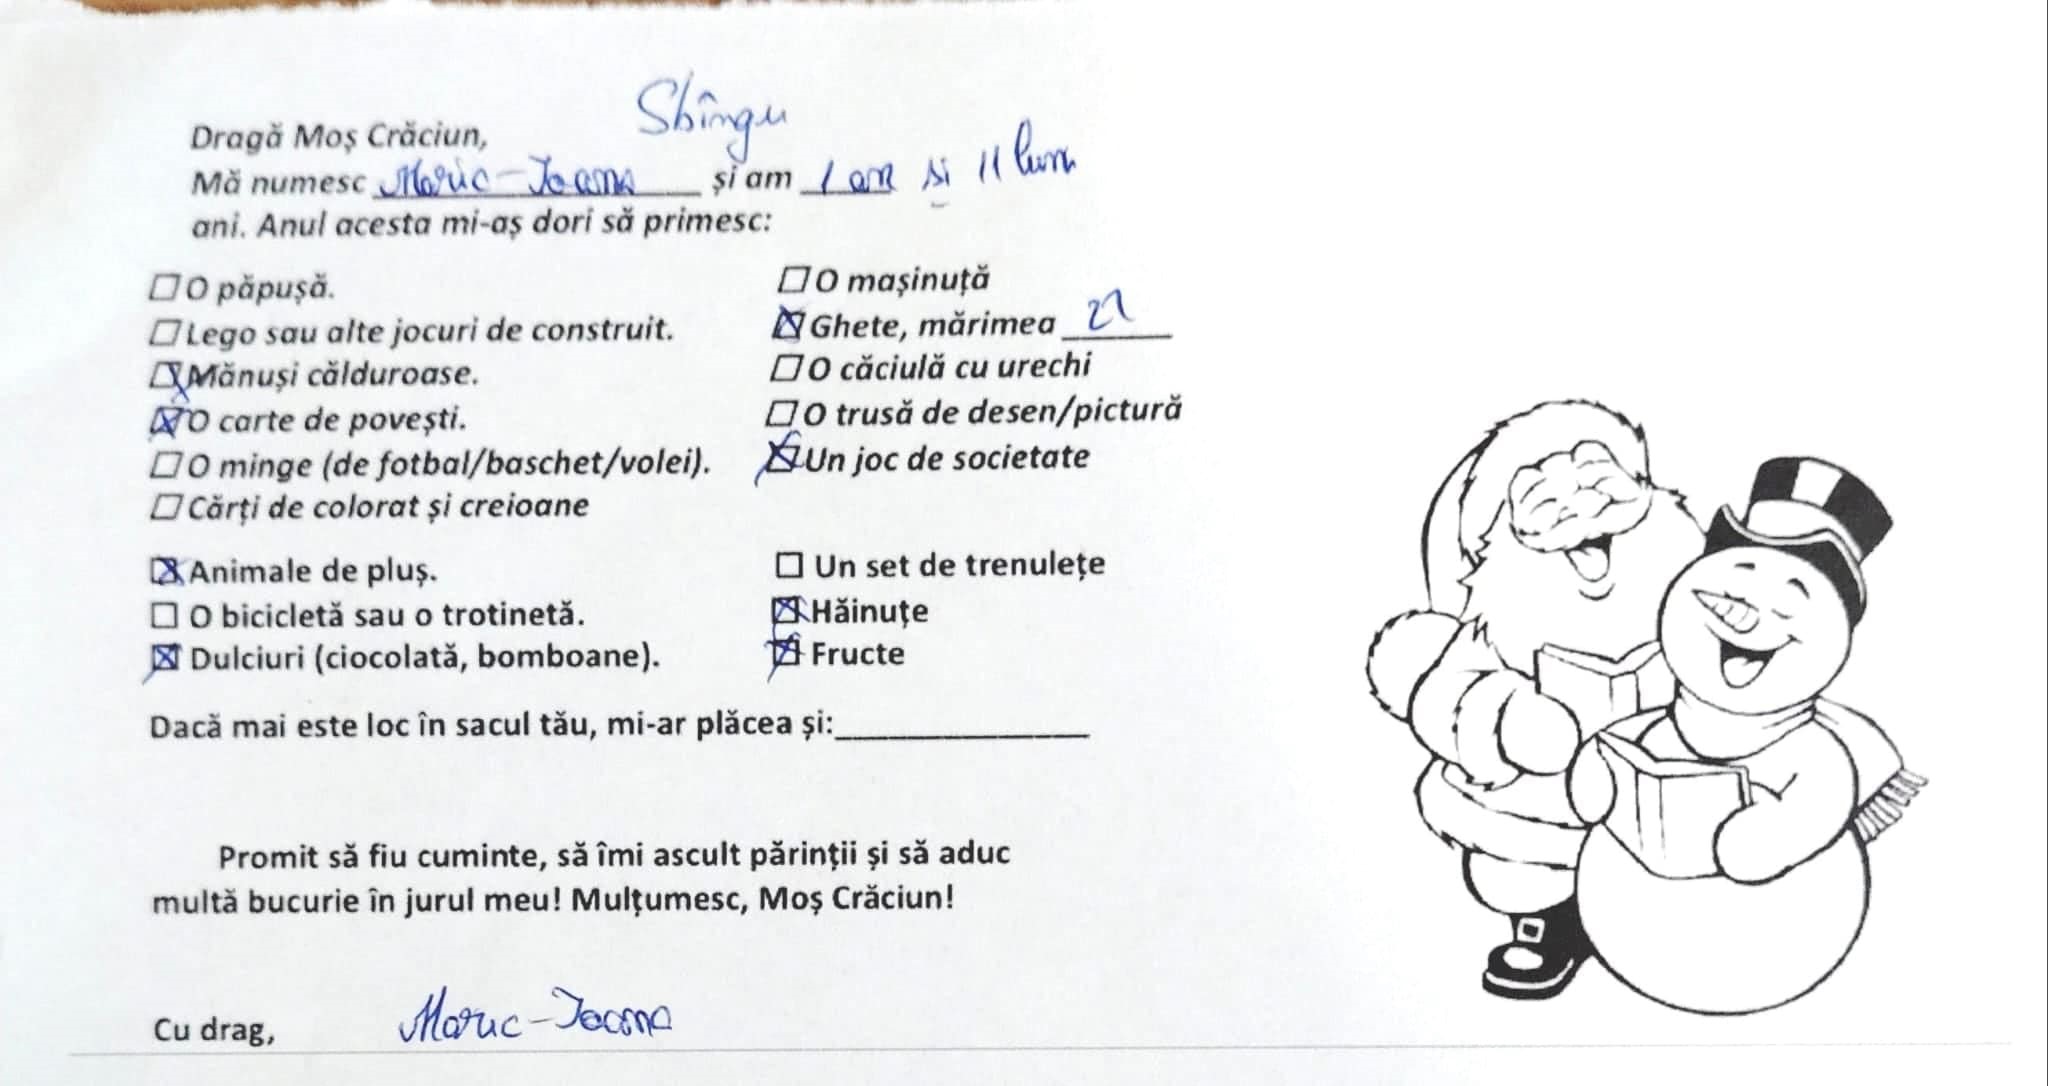 Sbîngu
Dragă Moș Crăciun,
Mă numesc Maria-Ioana și am 1 an și 11 luni
ani. Anul acesta mi-aș dori să primesc:
O păpușă. O mașinuță
Lego sau alte jocuri de construit. Ghete, mărimea
Mănuși călduroase. O căciulă cu urechi
O carte de povești. O trusă de desen/pictură
O minge (de fotbal/baschet/volei). Un joc de societate
Cărți de colorat și creioane
Animale de pluș. Un set de trenulețe
O bicicletă sau o trotinetă. Hăinuțe
Dulciuri (ciocolată, bomboane). Fructe
Dacă mai este loc în sacul tău, mi-ar plăcea și:
Promit să fiu cuminte, să îmi ascult părinții și să aduc
multă bucurie în jurul meu! Mulțumesc, Moș Crăciun!
Cu drag, Maria-Ioana